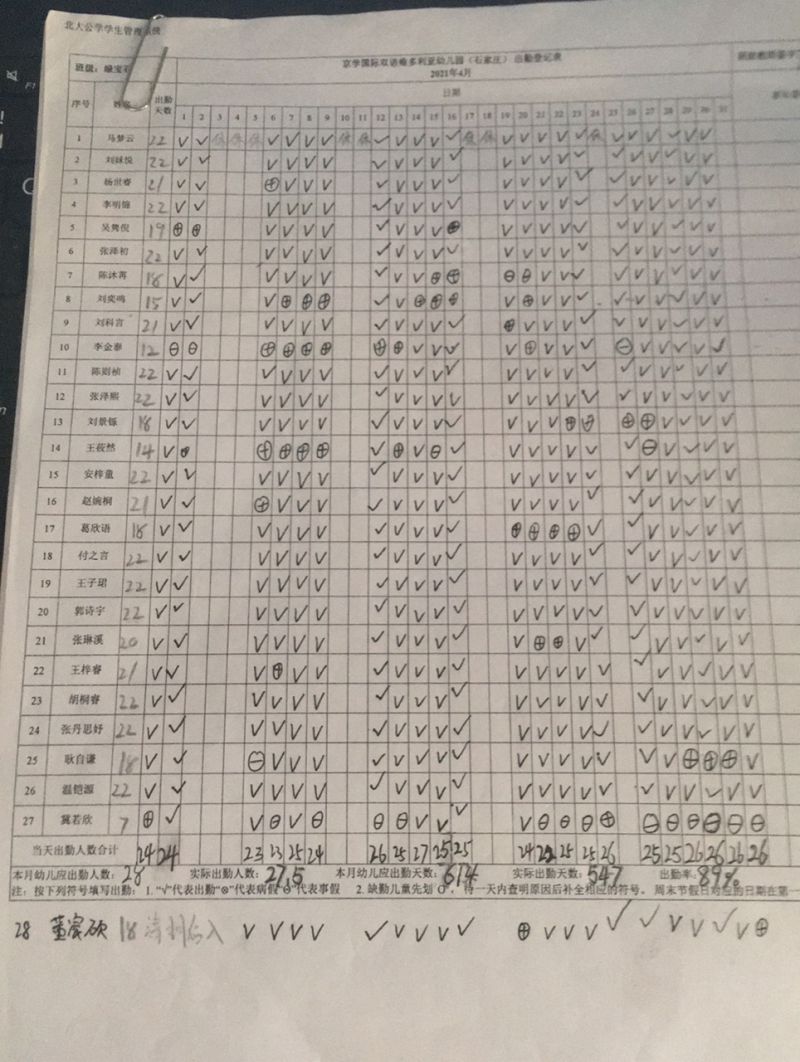 北大公学学生管理系统
班级：绿宝石
京学国际双语维多利亚幼儿园（石家庄）出勤登记表
2021年4月
序号 姓名 出勤天数 日期
1 2 3 4 5 6 7 8 9 10 11 12 13 14 15 16 17 18 19 20 21 22 23 24 25 26 27 28 29 30 31
1 马梦云 22 √ √ 休 休 休 √ √ √ √ 休 休 √ √ √ √ √ 休 休 √ √ √ √ √ 休 √ √ √ √ √ √
2 刘妹悦 22 √ √ √ √ √ √ √ √ √ √ √ √ √ √ √ √ √ √ √ √ √ √
3 杨世睿 21 √ √ ⊕ √ √ √ √ √ √ √ √ √ √ √ √ √ √ √ √ √ √ √
4 李明锦 22 √ √ √ √ √ √ √ √ √ √ √ √ √ √ √ √ √ √ √ √ √ √
5 吴隽倪 19 ⊕ ⊕ √ √ √ √ √ √ √ √ ⊕ √ √ √ √ √ √ √ √ √ √ √
6 张泽初 22 √ √ √ √ √ √ √ √ √ √ √ √ √ √ √ √ √ √ √ √ √ √
7 陈沐苒 18 √ √ √ √ √ √ √ √ √ ⊕ ⊕ ⊖ ⊕ √ √ √ √ √ √ √ √ √
8 刘奕鸣 15 √ √ √ ⊕ ⊕ ⊕ √ √ ⊕ ⊕ ⊕ √ ⊕ √ √ √ √ √ √ √ √ √
9 刘科言 21 √ √ √ √ √ √ √ √ √ √ √ ⊕ √ √ √ √ √ √ √ √ √ √
10 李金泰 12 ⊖ ⊖ ⊕ ⊕ ⊕ ⊕ ⊕ ⊕ √ √ √ √ ⊕ √ √ √ ⊖ √ √ √ √ √
11 陈则桢 22 √ √ √ √ √ √ √ √ √ √ √ √ √ √ √ √ √ √ √ √ √ √
12 张泽熙 22 √ √ √ √ √ √ √ √ √ √ √ √ √ √ √ √ √ √ √ √ √ √
13 刘景铄 18 √ √ √ √ √ √ √ √ √ √ √ √ √ √ ⊕ ⊕ ⊕ ⊕ √ √ √ √
14 王莜然 14 √ ⊕ ⊕ ⊕ ⊕ ⊕ √ ⊕ √ ⊖ √ √ √ √ √ √ √ ⊖ √ √ √ √
15 安梓童 22 √ √ √ √ √ √ √ √ √ √ √ √ √ √ √ √ √ √ √ √ √ √
16 赵婉桐 21 √ √ ⊕ √ √ √ √ √ √ √ √ √ √ √ √ √ √ √ √ √ √ √
17 葛欣语 18 √ √ √ √ √ √ √ √ √ √ √ ⊕ ⊕ ⊕ ⊕ √ √ √ √ √ √ √
18 付之言 22 √ √ √ √ √ √ √ √ √ √ √ √ √ √ √ √ √ √ √ √ √ √
19 王子珺 22 √ √ √ √ √ √ √ √ √ √ √ √ √ √ √ √ √ √ √ √ √ √
20 郭诗宇 22 √ √ √ √ √ √ √ √ √ √ √ √ √ √ √ √ √ √ √ √ √ √
21 张琳溪 20 √ √ √ √ √ √ √ √ √ √ √ √ ⊕ ⊕ √ √ √ √ √ √ √ √
22 王梓睿 21 √ √ √ ⊕ √ √ √ √ √ √ √ √ √ √ √ √ √ √ √ √ √ √
23 胡桐睿 22 √ √ √ √ √ √ √ √ √ √ √ √ √ √ √ √ √ √ √ √ √ √
24 张丹思妤 22 √ √ √ √ √ √ √ √ √ √ √ √ √ √ √ √ √ √ √ √ √ √
25 耿自谦 18 √ √ ⊖ √ √ √ √ √ √ √ √ √ √ √ √ √ √ √ ⊕ ⊕ ⊕ √
26 温铠源 22 √ √ √ √ √ √ √ √ √ √ √ √ √ √ √ √ √ √ √ √ √ √
27 冀若欣 7 ⊕ √ √ ⊖ √ ⊖ ⊖ ⊖ √ √ √ √ ⊖ ⊖ ⊖ ⊕ ⊖ ⊖ ⊖ ⊖ ⊖ ⊖
当天出勤人数合计 24 24 23 23 25 24 26 25 27 25 25 24 22 25 25 26 25 25 26 26 26 26
本月幼儿应出勤人数：28 实际出勤人数：27.5 本月幼儿应出勤天数：614 实际出勤天数：547 出勤率：89%
注：按下列符号填写出勤： 1.“√”代表出勤“⊗”代表病假“⊖”代表事假 2.缺勤儿童先划“O”，待一天内查明原因后补全相应的符号。 周末节假日对应的日期在第一
28 18 √ √ √ √ √ √ √ √ √ ⊕ √ √ √ √ √ √ √ √ √ ⊕